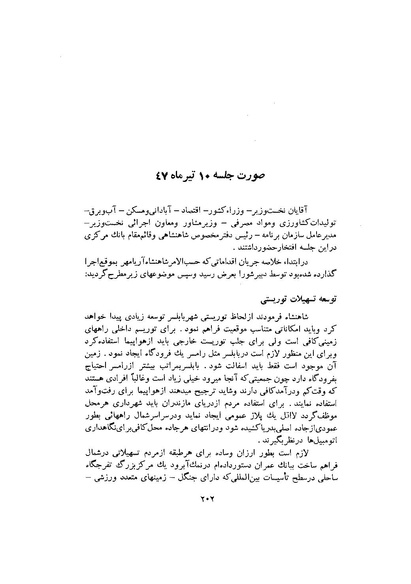 صورت جلسه ۱۰ تیرماه ۴۷
آقایان نخست‌وزیر– وزراء کشور– اقتصاد – آبادانی‌ومسکن – آب‌وبرق–
تولیدات‌کشاورزی ومواد مصرفی – وزیرمشاور ومعاون اجرائی نخست‌وزیر–
مدیرعامل سازمان برنامه – رئیس دفترمخصوص شاهنشاهی وقائم‌مقام بانك مرکزی
دراین جلسه افتخارحضورداشتند.
درابتداء خلاصه جریان اقداماتی‌که حسب‌الامرشاهنشاه‌آریامهر بموقع‌اجرا
گذارده شده‌بود توسط دبیرشورا بعرض رسید وسپس موضوعهای زیرمطرح‌گردید:
توسعه تسهیلات توریستی
شاهنشاه فرمودند ازلحاظ توریستی شهربابلسر توسعه زیادی پیدا خواهد
کرد وباید امکاناتی متناسب موقعیت فراهم نمود . برای توریسم داخلی راههای
زمینی‌کافی است ولی برای جلب توریست خارجی باید ازهواپیما استفاده‌کرد
وبرای این منظور لازم است دربابلسر مثل رامسر یك فرودگاه ایجاد نمود . زمین
آن موجود است فقط باید اسفالت شود . بابلسربمراتب بیشتر ازرامسر احتیاج
بفرودگاه دارد چون جمعیتی‌که آنجا میرود خیلی زیاد است وغالباً افرادی هستند
که وقت‌کم ودرآمدکافی دارند وشاید ترجیح میدهند ازهواپیما برای رفت‌وآمد
استفاده نمایند . برای استفاده مردم ازدریای مازندران باید شهرداری هرمحل
موظف‌گردد لااقل یك پلاژ عمومی ایجاد نماید ودرسراسرشمال راههائی بطور
عمودی‌ازجاده اصلی‌بدریاکشیده شود ودرانتهای هرجاده محل‌کافی‌برای‌نگاهداری
اتومبیل‌ها درنظربگیرند .
لازم است بطور ارزان وساده برای هرطبقه ازمردم تسهیلاتی درشمال
فراهم ساخت ببانك عمران دستورداده‌ام درنمك‌آبرود یك مرکزبزرگ تفرجگاه
ساحلی درسطح تأسیسات بین‌المللی‌که دارای جنگل – زمینهای متعدد ورزشی –
۲۰۲